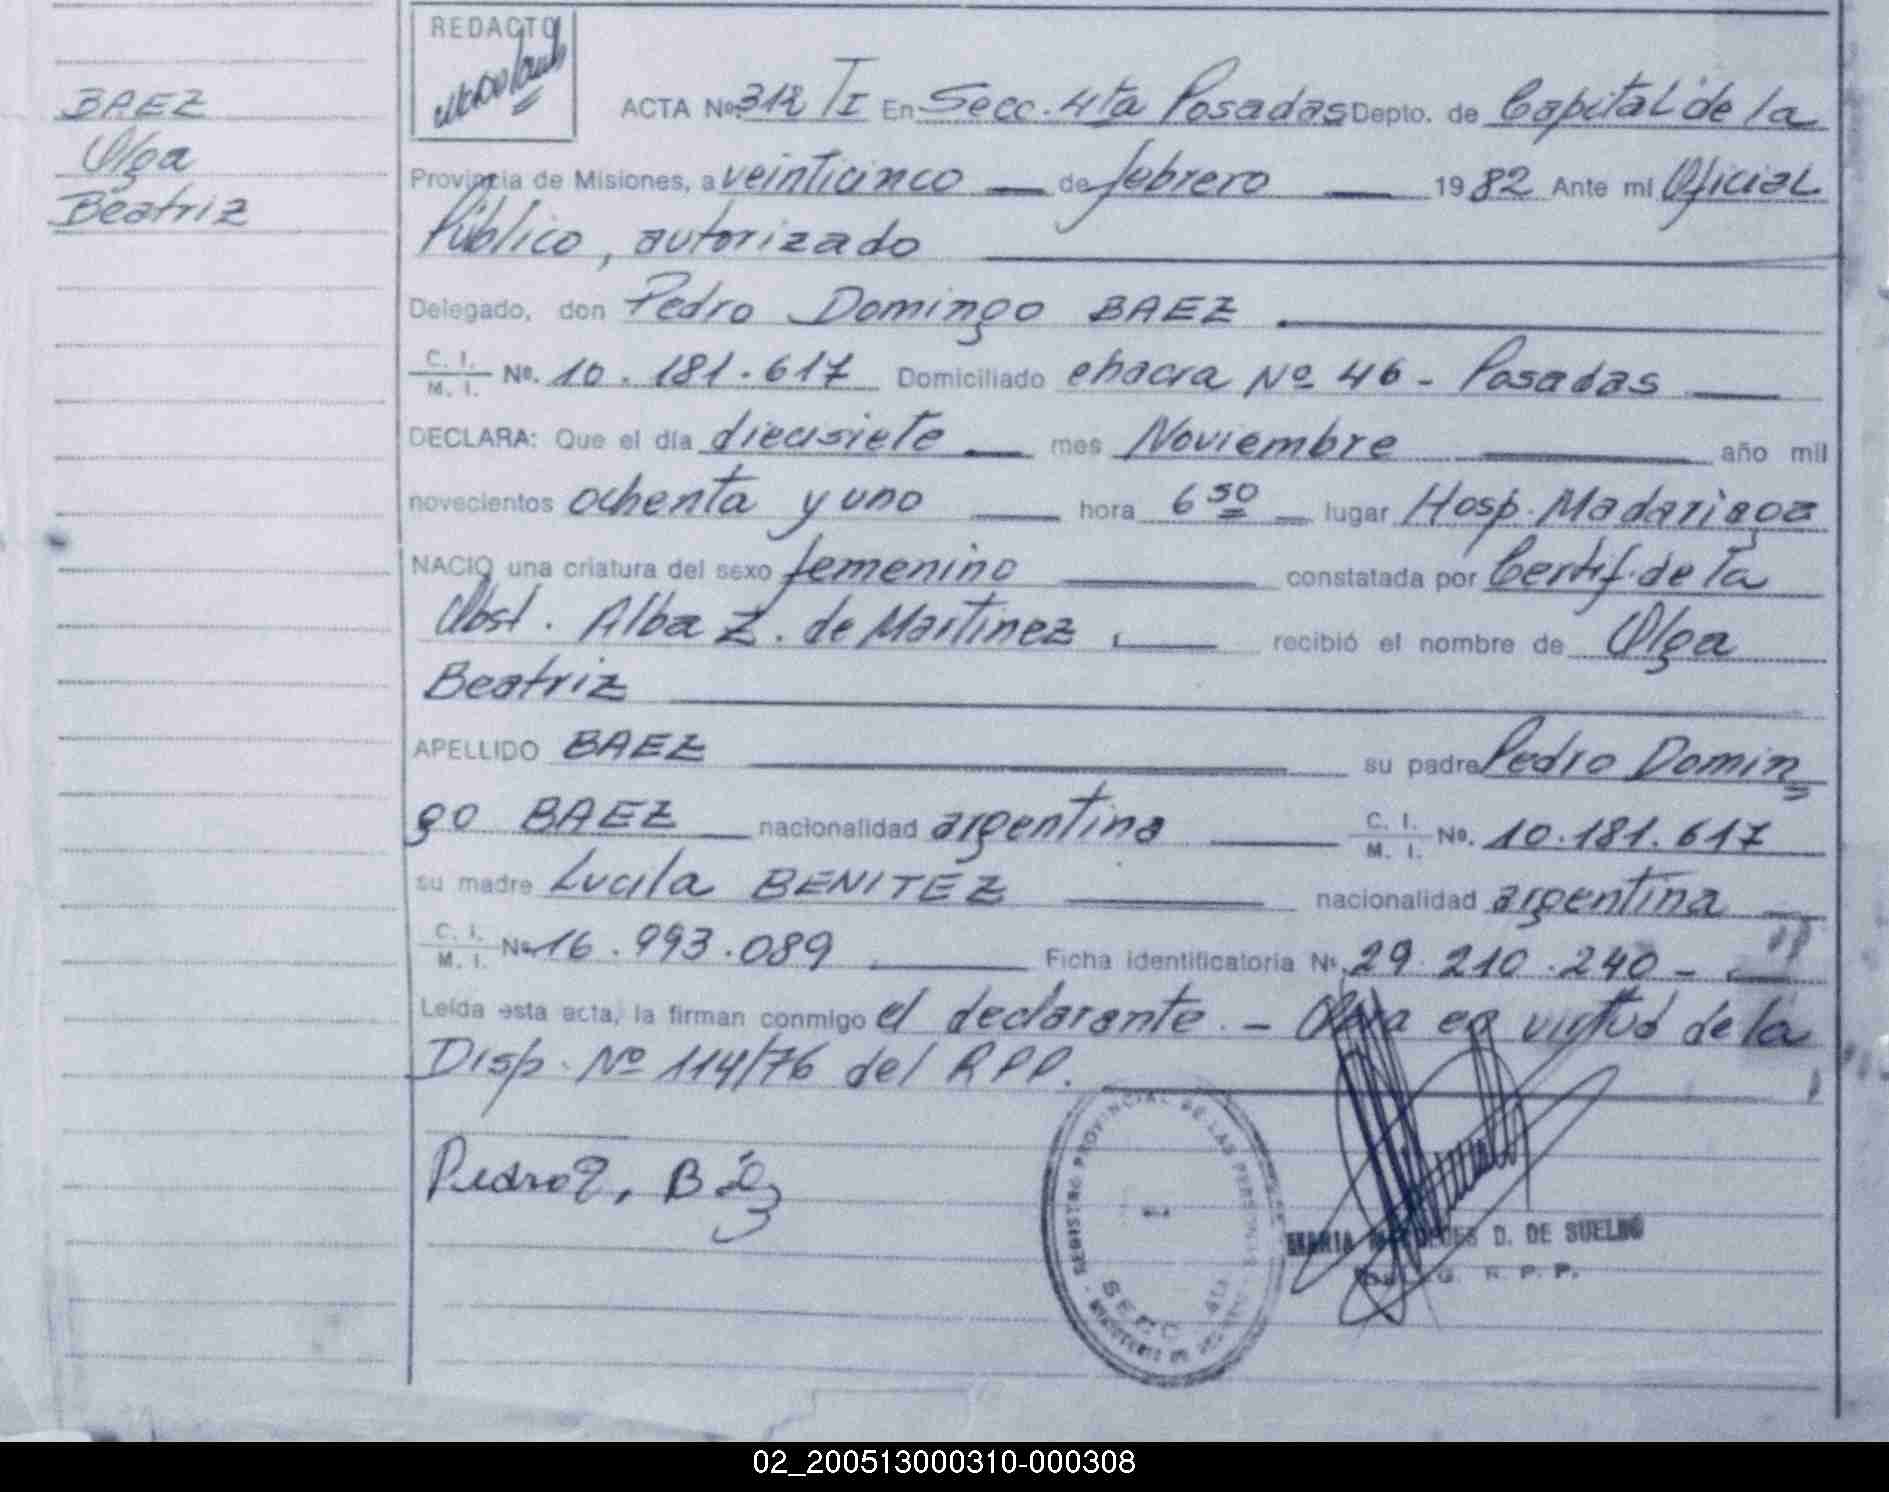 BAEZ
Olga
Beatriz
REDACTO
ACTA Nº 312 TI En Secc. 4ta Posadas Depto. de Capital de la
Provincia de Misiones, a veinticinco de febrero 1982 Ante mi Oficial
Público, autorizado
Delegado, don Pedro Domingo BAEZ
C. I. / M. I. Nº. 10.181.617 Domiciliado chacra Nº 46 - Posadas
DECLARA: Que el día diecisiete mes Noviembre año mil
novecientos ochenta y uno hora 6 50 lugar Hosp. Madariaga
NACIO una criatura del sexo femenino constatada por Certif. de la
Obst. Alba Z. de Martinez recibió el nombre de Olga
Beatriz
APELLIDO BAEZ su padre Pedro Domin
go BAEZ nacionalidad argentina C. I. / M. I. Nº. 10.181.617
su madre Lucila BENITEZ nacionalidad argentina
C. I. / M. I. Nº 16.993.089 Ficha identificatoria Nº 29.210.240 -
Leída esta acta, la firman conmigo el declarante. - en virtud de la
Disp. Nº 114/76 del RPP.
REGISTRO PROVINCIAL DE LAS PERSONAS
SECC. 4ta
Pedro D. Báez
MARIA MERCEDES D. DE SUELDO
R. P. P.
02_200513000310-000308